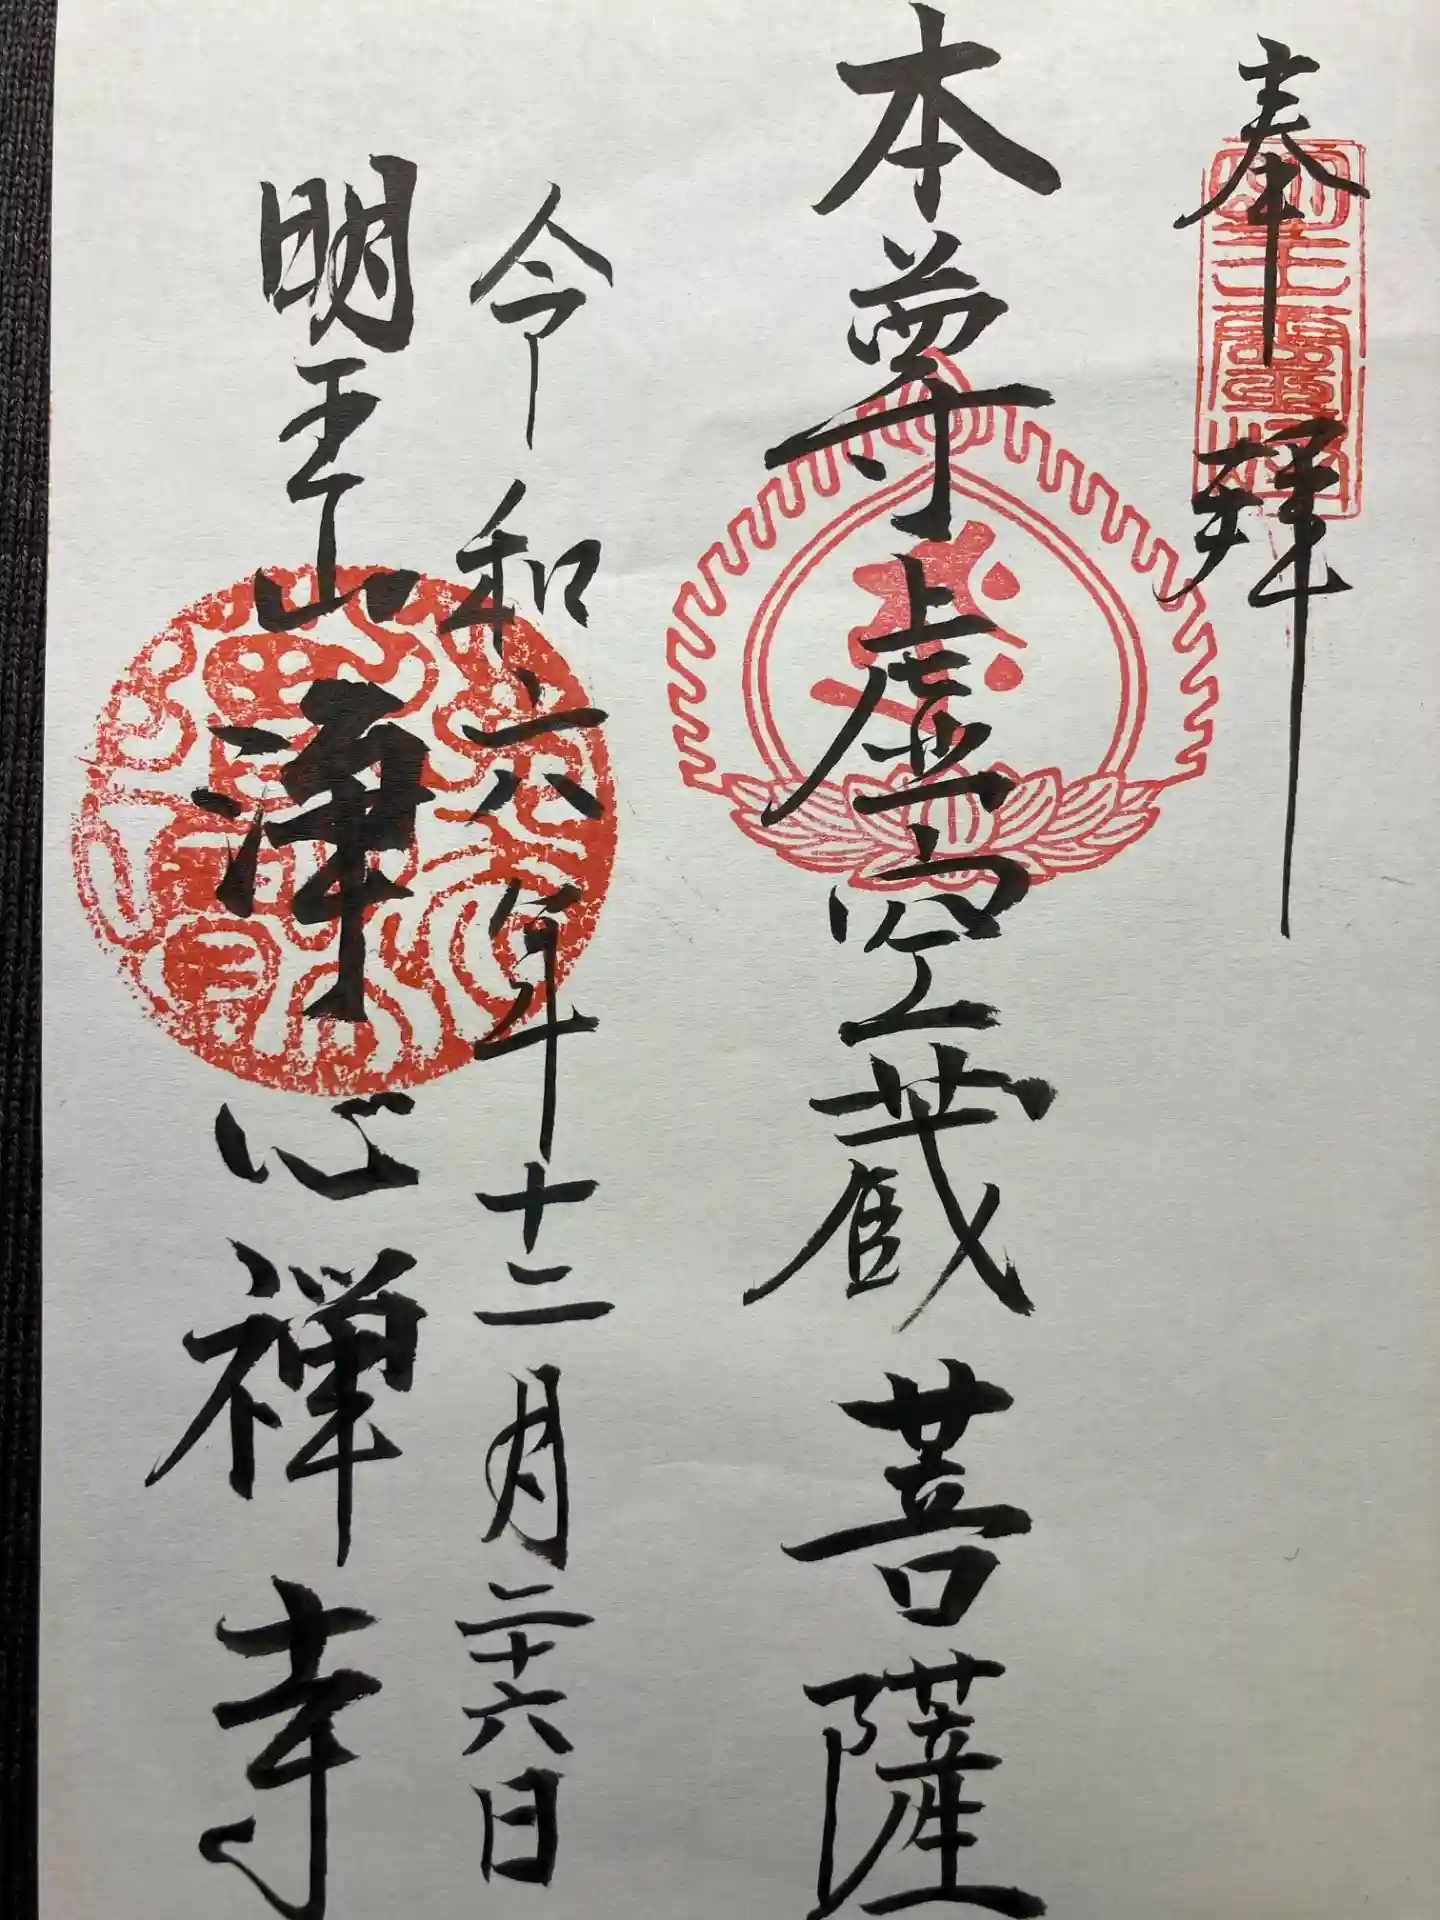 奉拝
本尊虚空蔵菩薩
令和六年十二月二十六日
明王山浄心禅寺